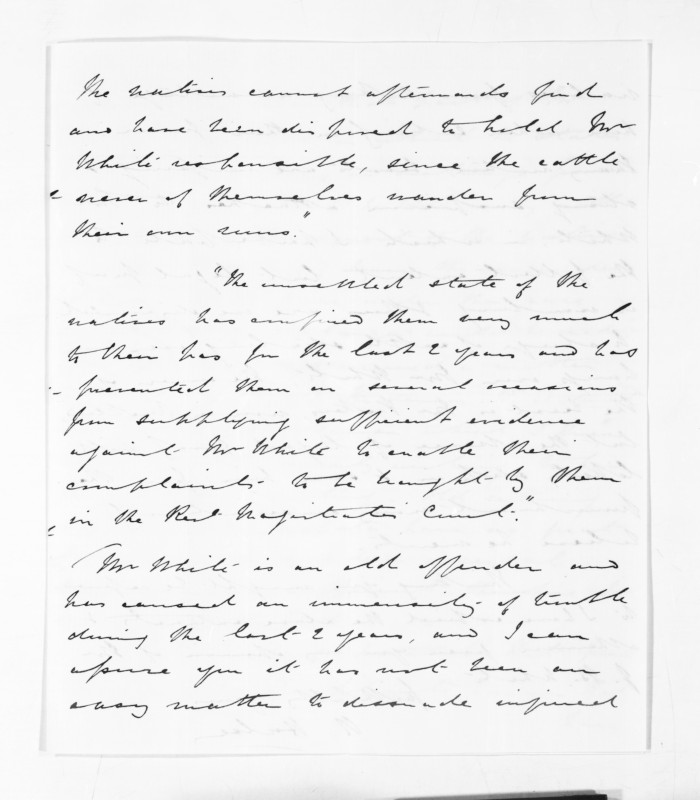 the natives cannot afterwards find
and have been disposed to hold Mr
White responsible, since the cattle
never of themselves wander from
their own runs."
"The unsettled state of the
natives has confined them very much
to their pas for the last 2 years and has
prevented them on several occasions
from supplying sufficient evidence
against Mr White to enable their
complaints to be brought by them
in the Rest Magistrates Court."
Mr White is an old offender and
has caused an immensity of trouble
during the last 2 years, and I can
assure you it has not been an
easy matter to dissuade injured